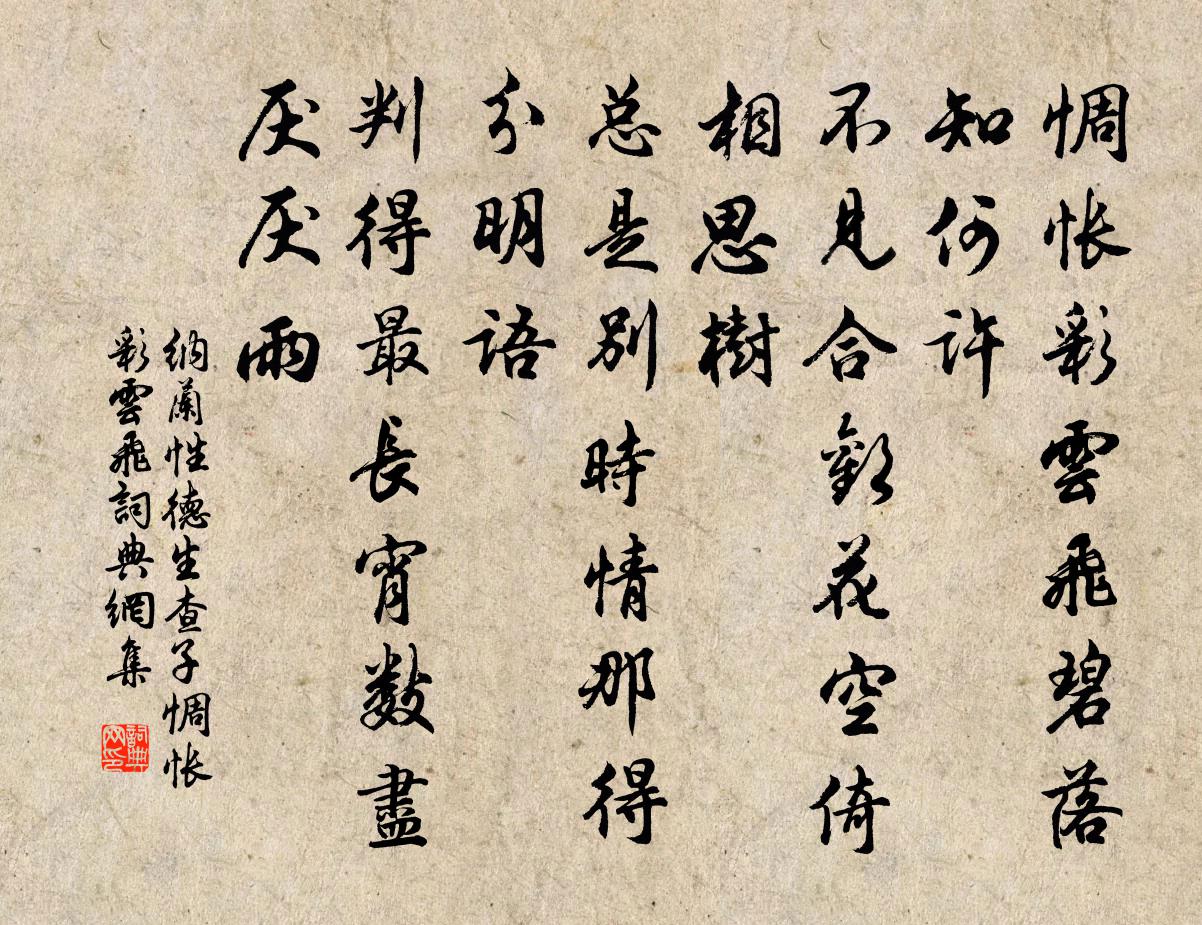 惆怅彩雲飛碧落
知何许
不見合歡花空倚
相思樹
总是别時情那得
分明语
判得最長宵數盡
厌厌雨
纳蘭性德生查子惆怅
彩雲飛詞典網集
詞典网印